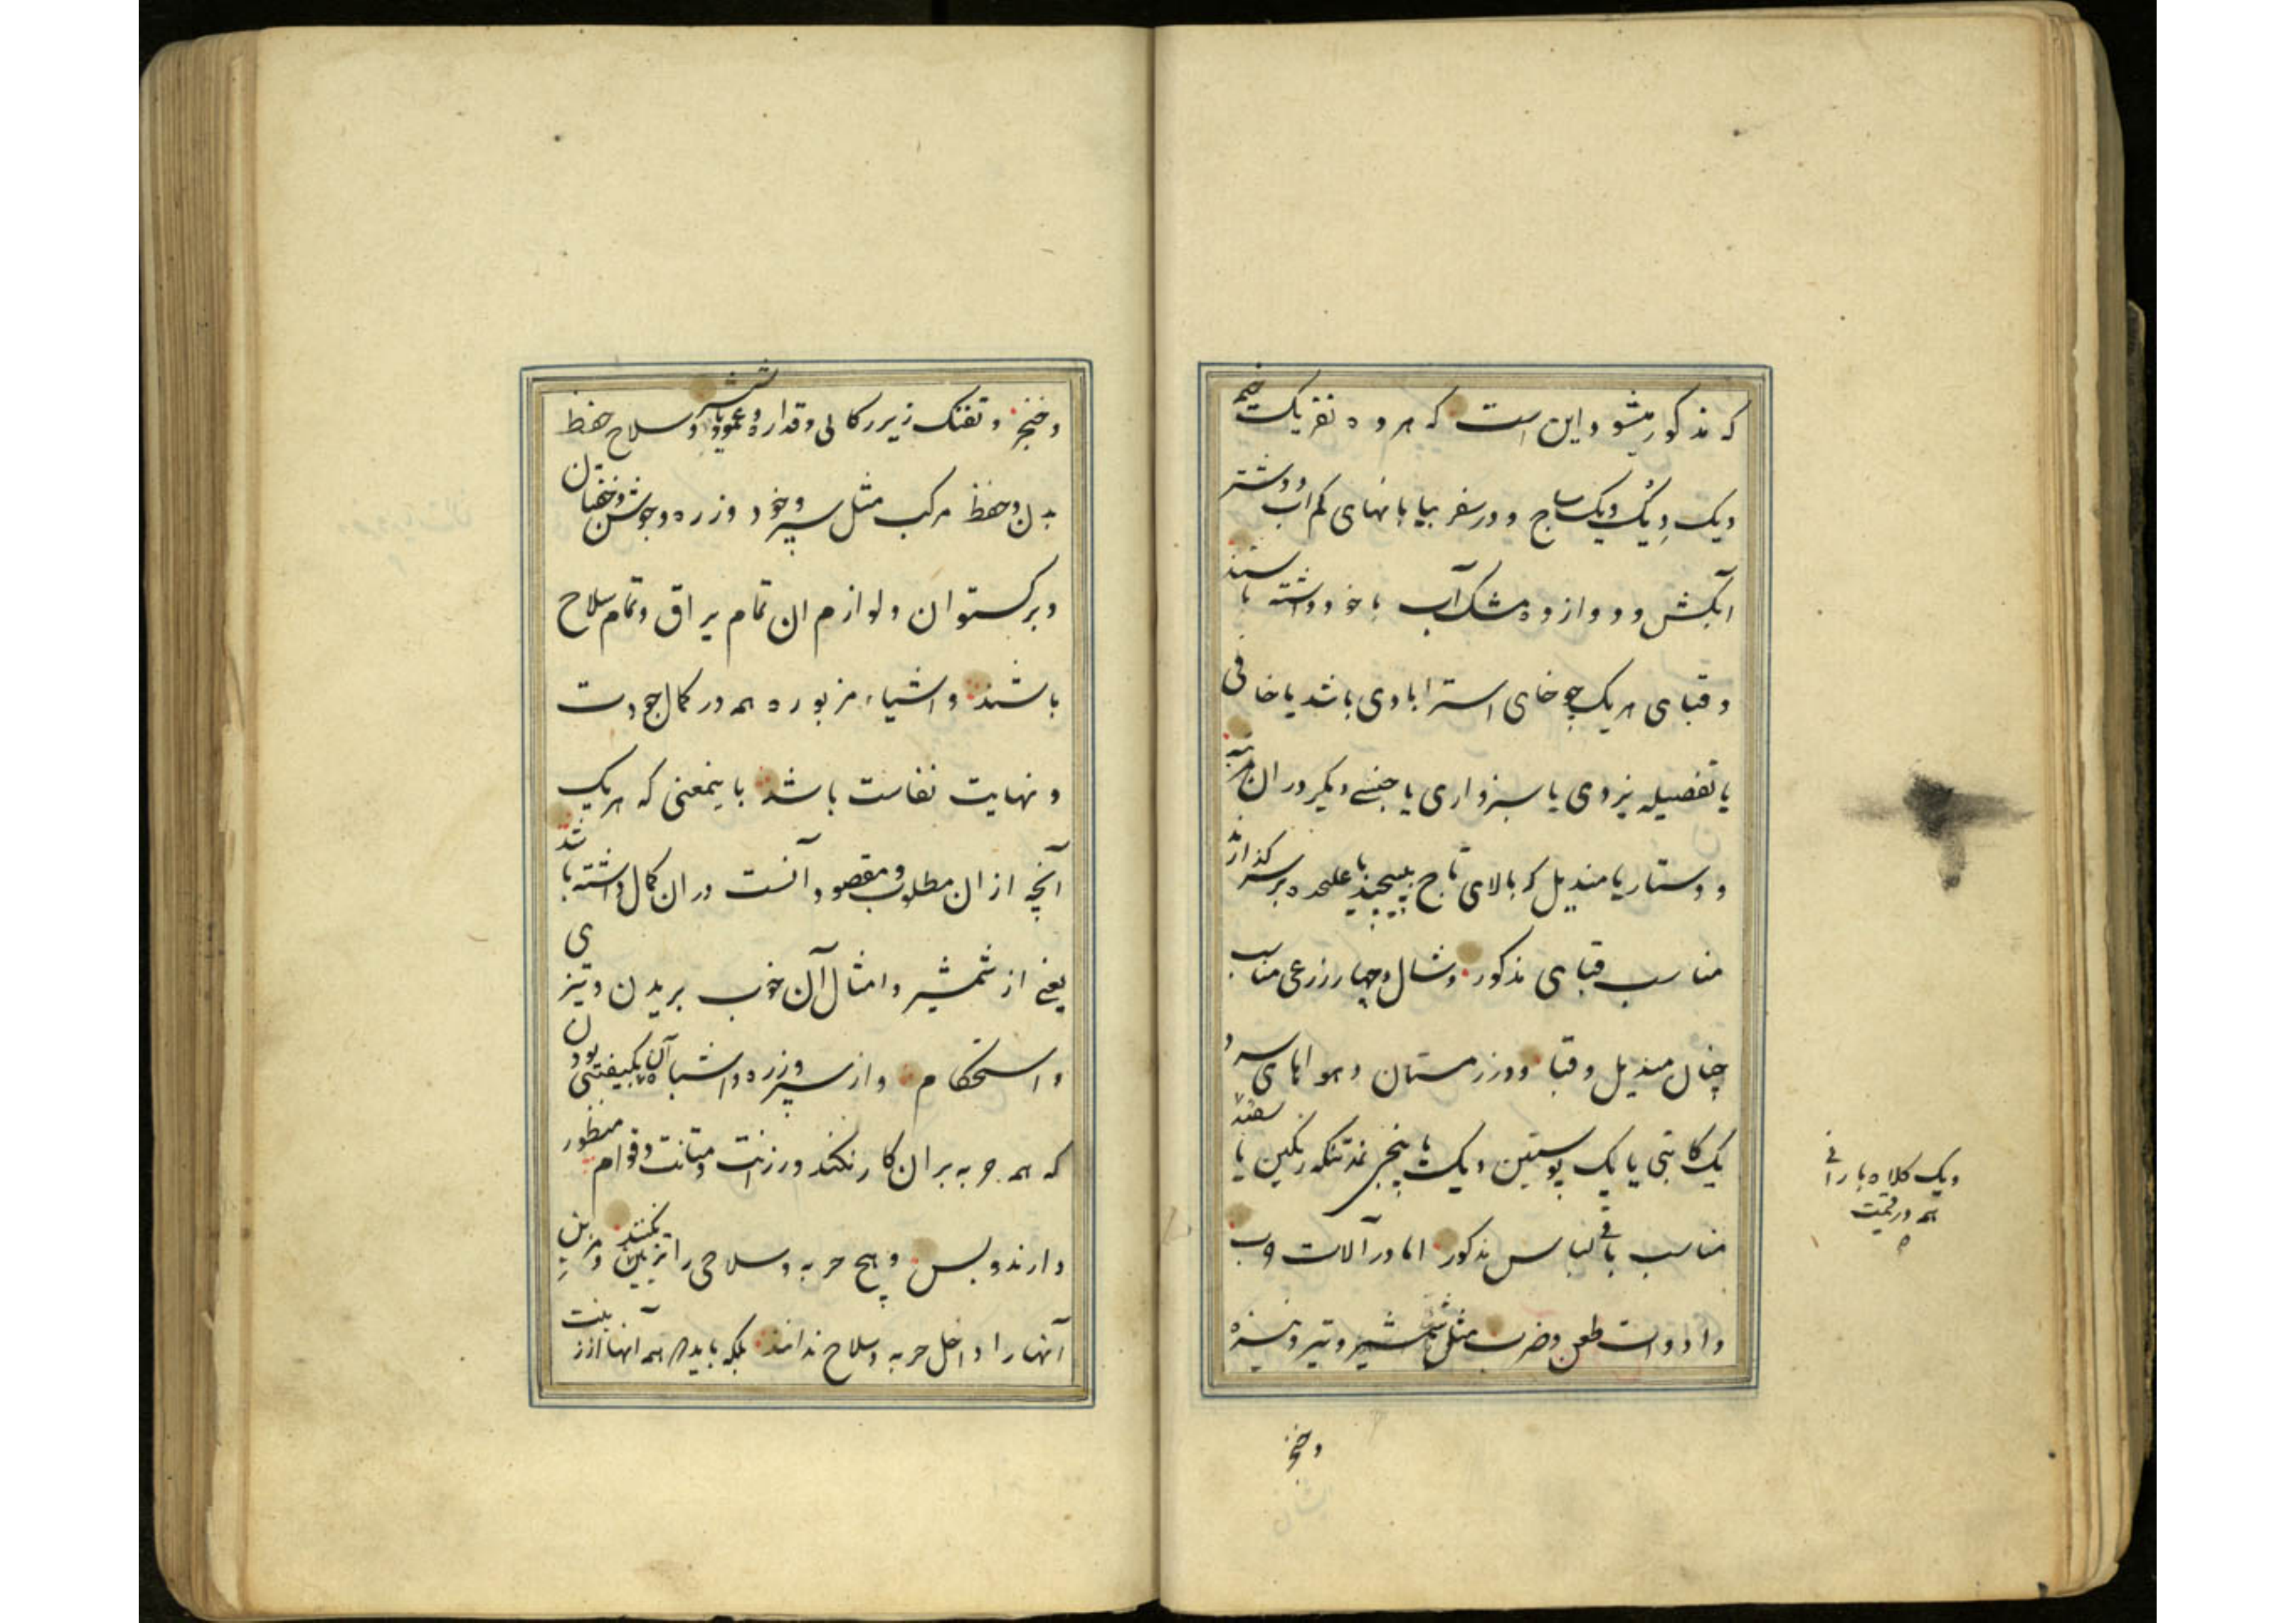 که مذکور میشود و این است که هر ده نفر یک خیمه
و یک دیک و یک ساج و در سفر بیابانهای کم آب دو شتر
آبکش و دوازده مشک آب با خود داشته باشند
و قبای هر یک چوخای استرابادی باشد یا خافی
یا تفصیله یزدی یا سبزواری یا جنسی دیگر در ان مرتبه
و دستار یا مندیل که بالای تاج پیچند یا علیحده بر سر گذارند
مناسب قبای مذکور و شال و چهار زرعی مناسب
چنان مندیل و قبا و در زمستان و هواهای سرد
یک کاتبی یا یک پوستین و یک پاپنجی نمد تنکه رنکین یا سفید
مناسب باقی لباس مذکور اما در آلات حرب
و ادوات طعن و ضرب مثل شمشیر و تیر و نیزه
و خنجر
و یک کلاه بارانی
هم در قیمت
و خنجر و تفنک زیر رکابی و قداره و عمود و تبر و سلاح حفظ
بدن و حفظ مرکب مثل سپر و خود و زره و جوشن و خفتان
و برکستوان و لوازم ان تمام یراق و تمام سلاح
باشند و اشیاء مزبوره همه در کمال جودت
و نهایت نفاست باشد باینمعنی که هر یک
آنچه از ان مطلوب و مقصود آنست در ان کمال داشته باشد
یعنی از شمشیر و امثال آن خوب بریدن و تیزی
و استحکام و از سپر و زره و اشباه آن بکیفیتی بودن
که همه حربه بر ان کار نکند و رزانت و متانت و قوام منظور
دارند و بس و هیچ حربه و سلاحی را تزیین نکنند و مزین
آنها را داخل حربه و سلاح ندانند بلکه باید همه آنها از زینت